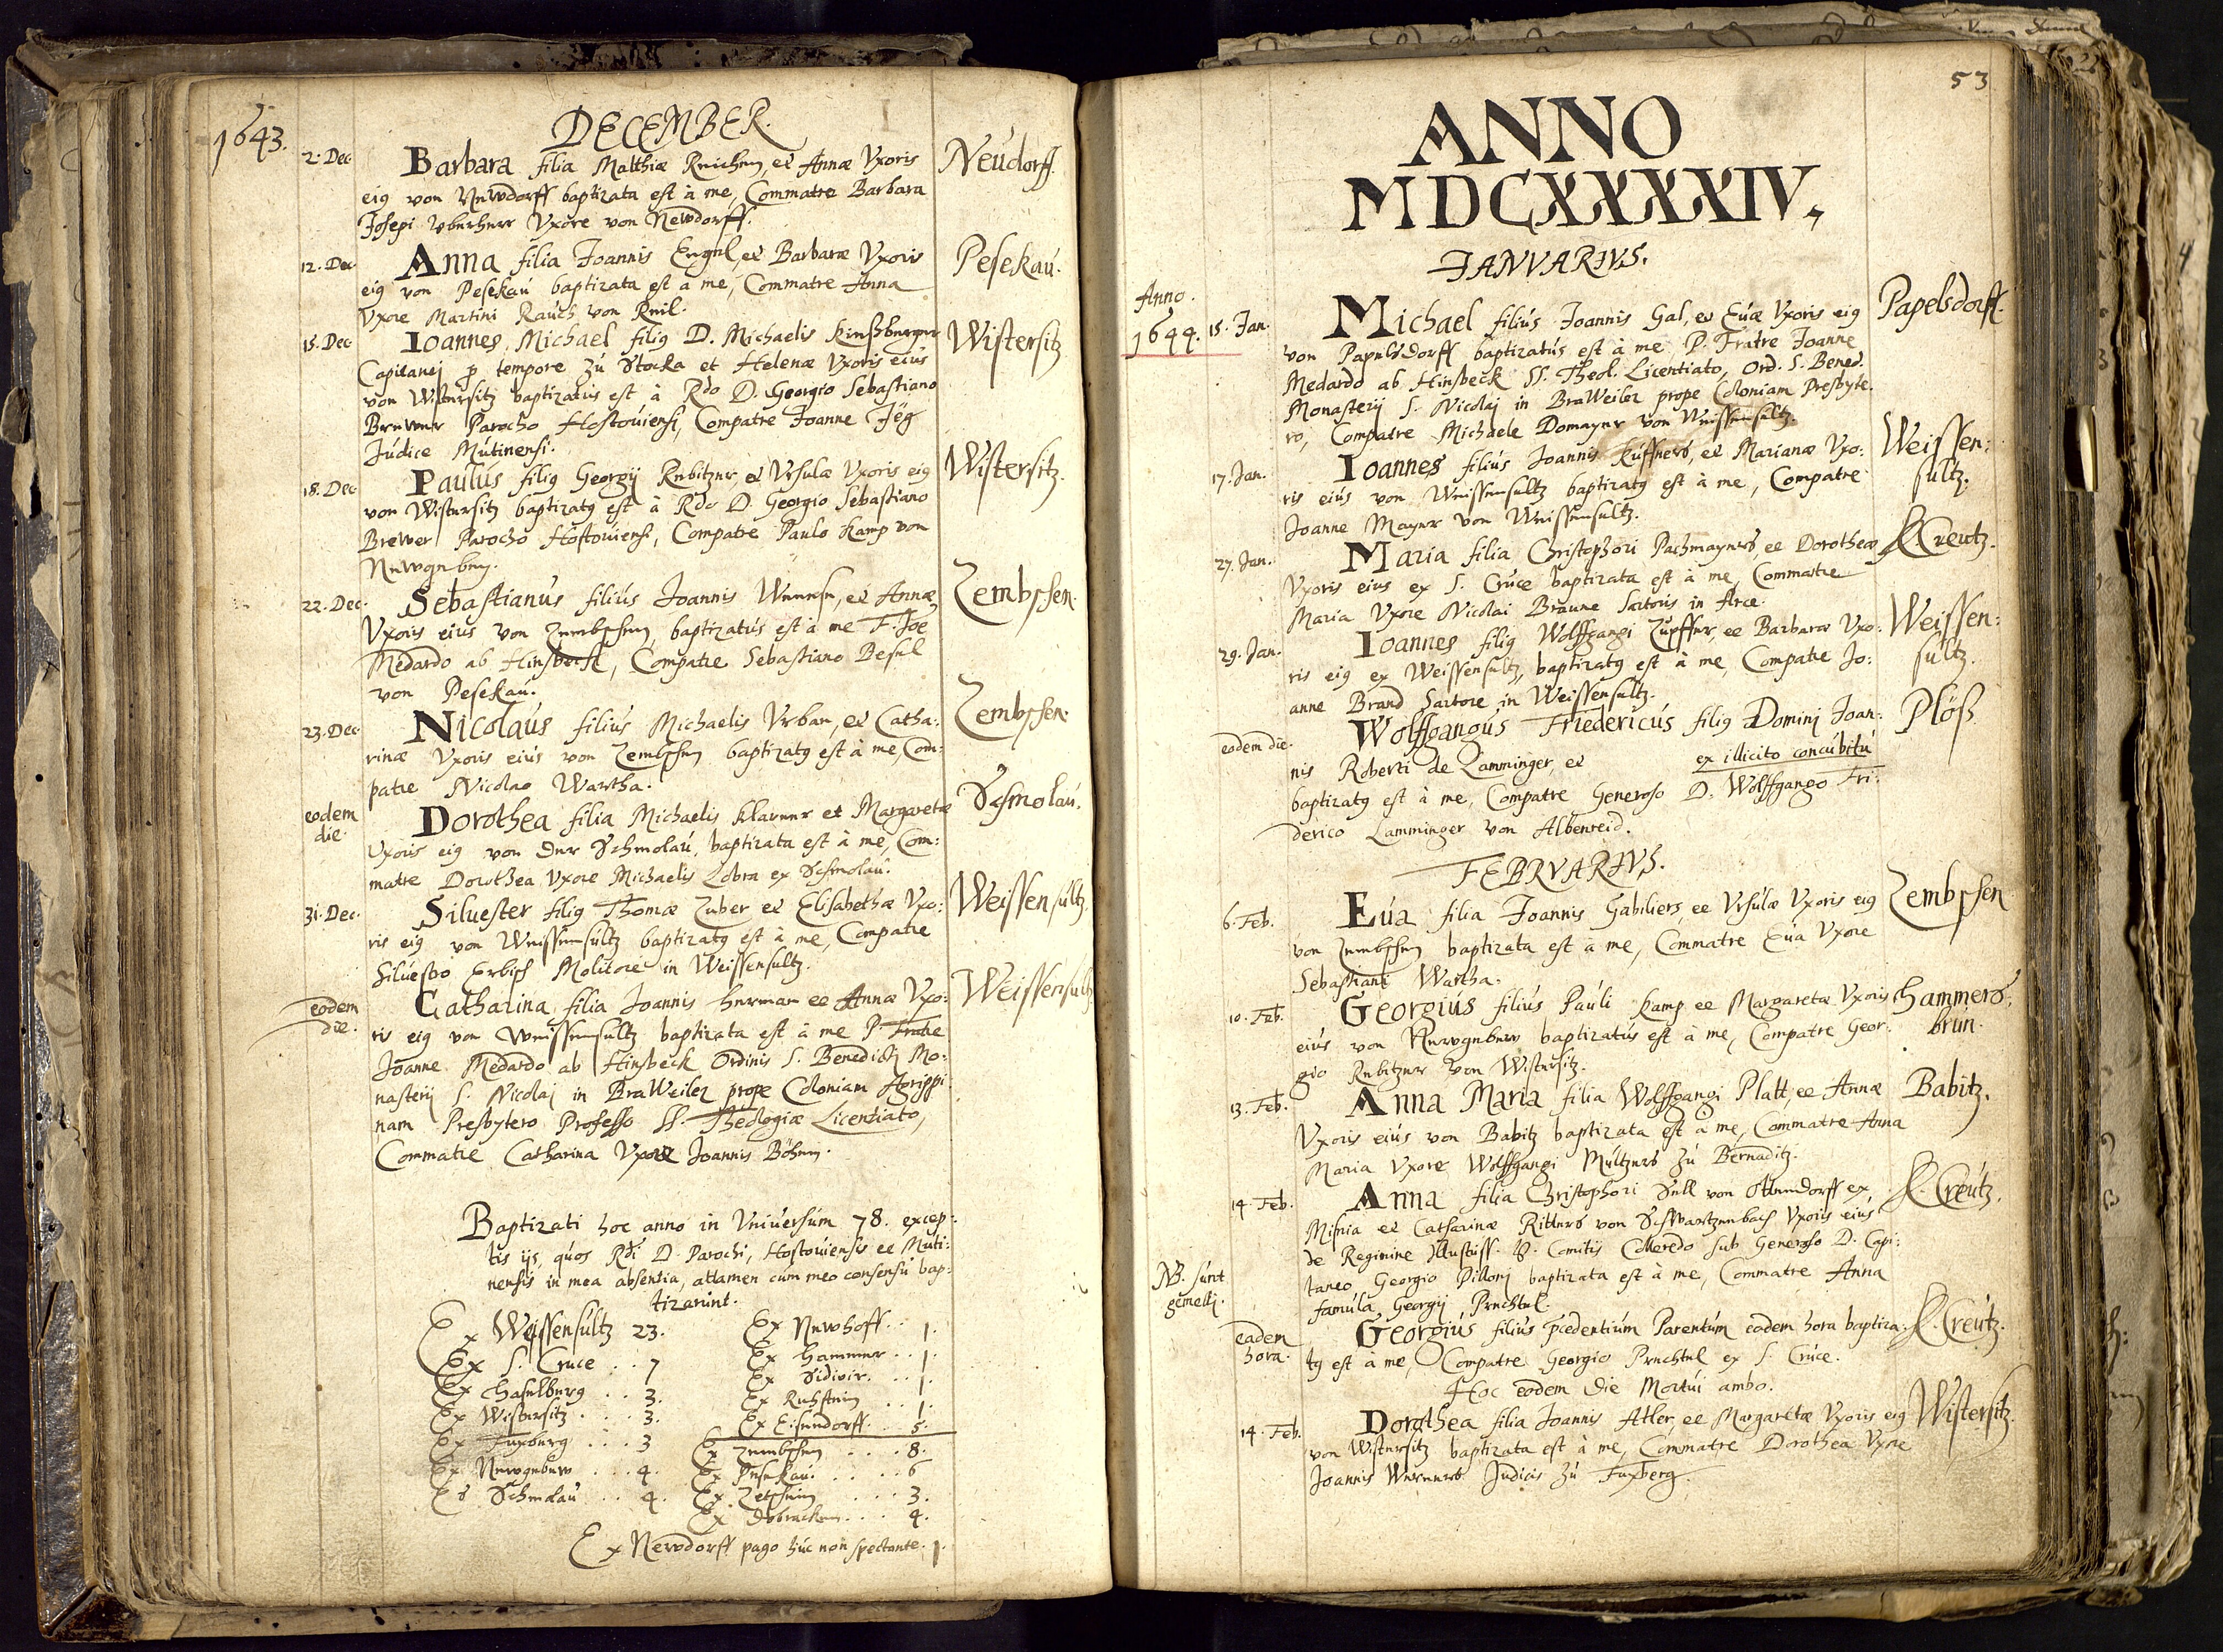 1643.
DECEMBER.
2. Dec. Barbara filia Matthiæ et Annæ Vxoris Neudorff.
eig von Newdorff baptizata est à me, Commatre Barbara
Josepi Vxore von Newdorff.
12. Dec. Anna filia Joannis Engel, et Barbaræ Vxoris Pesekaú.
eig von Pesekaú baptizata est a me, Commatre Anna
Vxore Martini Raúch von
15. Dec. Ioannes Michael filig D. Michaelis Wistersitz
Capitanej p tempore zú Stocka et Helenæ Vxoris eiús
von Wistersitz baptizatús est à Rdo D. Georgio Sebastiano
Brewer Parocho Hostoúiensi, Compatre Joanne
Júdice Mútinensi.
18. Dec. Paulús filig Georgij Rebitzer, et Vrsulæ Vxoris eig Wistersitz.
von Wistersitz baptizatg est à Rdo D. Georgio Sebastiano
Brewer Parocho Hostoúiensi, Compatre Paulo Kamp von
Newgeben.
22. Dec. Sebastianús filiús Joannis et Annæ Zembschen.
Vxoris eiús von Zembschen, baptizatús est à me F. Joe
Medardo ab Hinsbeck, Compatre Sebastiano
von Pesekaú.
23. Dec. Nicolaús filiús Michaelis Vrban, et Catha: Zembschen.
rinæ Vxoris eiús von Zembschen baptizatg est à me, Com:
patre Nicolao Wartha.
eodem Dorothea filia Michaelis Klarner et Margaretæ Schmolaú.
die. Vxoris eig von der Schmolaú, baptizata est à me, Com:
matre Dorothea Vxore Michaelis Lobra ex Schmolaú.
31. Dec. Siluester filig Thomæ Zuber et Elisabethæ Vxo: Weissensúltz.
ris eig von Weissensúltz baptizatg est à me, Compatre
Siluestro Erbisch Molitore in Weissensultz.
eodem Catharina filia Joannis Herman et Annæ Vxo: Weissensultz
die. ris eig von Weissensultz baptizata est à me P. Fratre
Joanne Medardo ab Hinsbeck Ordinis S. Benedicti Mo:
nasterij S. Nicolaj in BraWeiler prope Coloniam Agrippi
nam Presbytero Professo SS. Theologiæ Licentiato,
Commatre Catharina Vxore Joannis Böhm.
Baptizati hoc anno in Vniúersúm 78. excep:
tis ijs, qúos Rdi D. Parochi, Hostoúiensis et Múti:
nensis in mea absentia, attamen cúm meo consensú bap:
tizarúnt.
Ex Weissensultz 23. Ex Newhoff . . 1.
Ex S. Cruce . . 7 Ex Hammer . . 1.
Ex Haselberg . . 3. Ex Sidivir. . . 1.
Ex Wistersitz . . . 3. Ex Ruhstein . . 1.
Ex Fuxberg . . . 3 Ex Eisendorff. . 5.
Ex Newgebew . . . 4. Ex Zembschen . . . . 8.
Ex Schmolaú . . 4. Ex Pesekaú . . . . 6
Ex Zetschin . . . . 3.
Ex Dobracken . . . 4.
Ex Newdorff pago húc non spectante. 1.
53
ANNO
MDCXXXXIV.
IANVARIVS.
Anno.
1644. 15. Jan. Michael filiús Joannis Gal, et Eúæ Vxoris eig Papelsdorff.
von Papelsdorff baptizatús est à me P. Fratre Joanne
Medardo ab Hinsbeck SS. Theol. Licentiato, Ord. S. Bened.
Monasterij S. Nicolaj in BraWeiler prope Coloniam Presbyte:
ro, Compatre Michaele Domayer von Weissensultz.
17. Jan. Ioannes filiús Joannis Kúffners, et Marianæ Vxo: Weissen:
ris eiús von Weissensultz baptizatg est à me, Compatre súltz.
Joanne Mayer von Weissensultz.
27. Jan. Maria filia Christophori Pachmayers, et Dorotheæ S. Creutz.
Vxoris eius ex S. Crúce baptizata est à me, Commatre
Maria Vxore Nicolai Braúne Sartoris in Arce.
29. Jan. Ioannes filig Wolffgangi Zúpffer, et Barbaræ Vxo: Weissen:
ris eig ex Weissensultz, baptizatg est à me, Compatre Jo: súltz.
anne Brand Sartore in Weissensúltz.
eodem die. Wolffgangús Friedericús filig Dominj Joan: Plöß
nis Roberti de Lamminger, et ex illicito concúbitú
baptizatg est à me, Compatre Generoso D. Wolffgango Fri:
derico Lamminger von Albenreid.
FEBRVARIVS.
6. Feb. Eúa filia Joannis Gabiliers, et Vrsúlæ Vxoris eig Zembschen
von Zembschen baptizata est à me, Commatre Eúa Vxore
Sebastiani Wartha.
10. Feb. Georgiús filiús Paúli Kamp et Margaretæ Vxoris Hammers:
eiús von Newgebew baptizatús est à me, Compatre Geor: brún.
gio Rebitzer von Wistersitz.
13. Feb. Anna Maria filia Wolffgangi Platt, et Annæ Babitz.
Vxoris eiús von Babitz baptizata est à me, Commatre Anna
Maria Vxore Wolffgangi Múltzers zú Bernaditz.
14. Feb. Anna filia Christophori Sell von Ottendorff ex S. Creútz.
Misnia et Catharinæ Ritters von Schwartzenbach Vxoris eiús
de Regimine Illustriss. D. Comitis Colleredo sub Generoso D. Capi:
taneo Georgio Pilloni baptizata est à me, Commatre Anna
famúla Georgij Prechtel.
NB. súnt
gemelli.
eadem Georgiús filiús præcedentiúm Parentúm eadem hora baptiza: S. Creútz.
hora. tg est à me, Compatre Georgio Prechtel ex S. Crúce.
Hoc eodem die Mortúi ambo.
14. Feb. Dorothea filia Joannis Atler, et Margaretæ Vxoris eig Wistersitz.
von Wistersitz baptizata est à me, Commatre Dorothea Vxore
Joannis Werners Judicis zú Fuxberg.